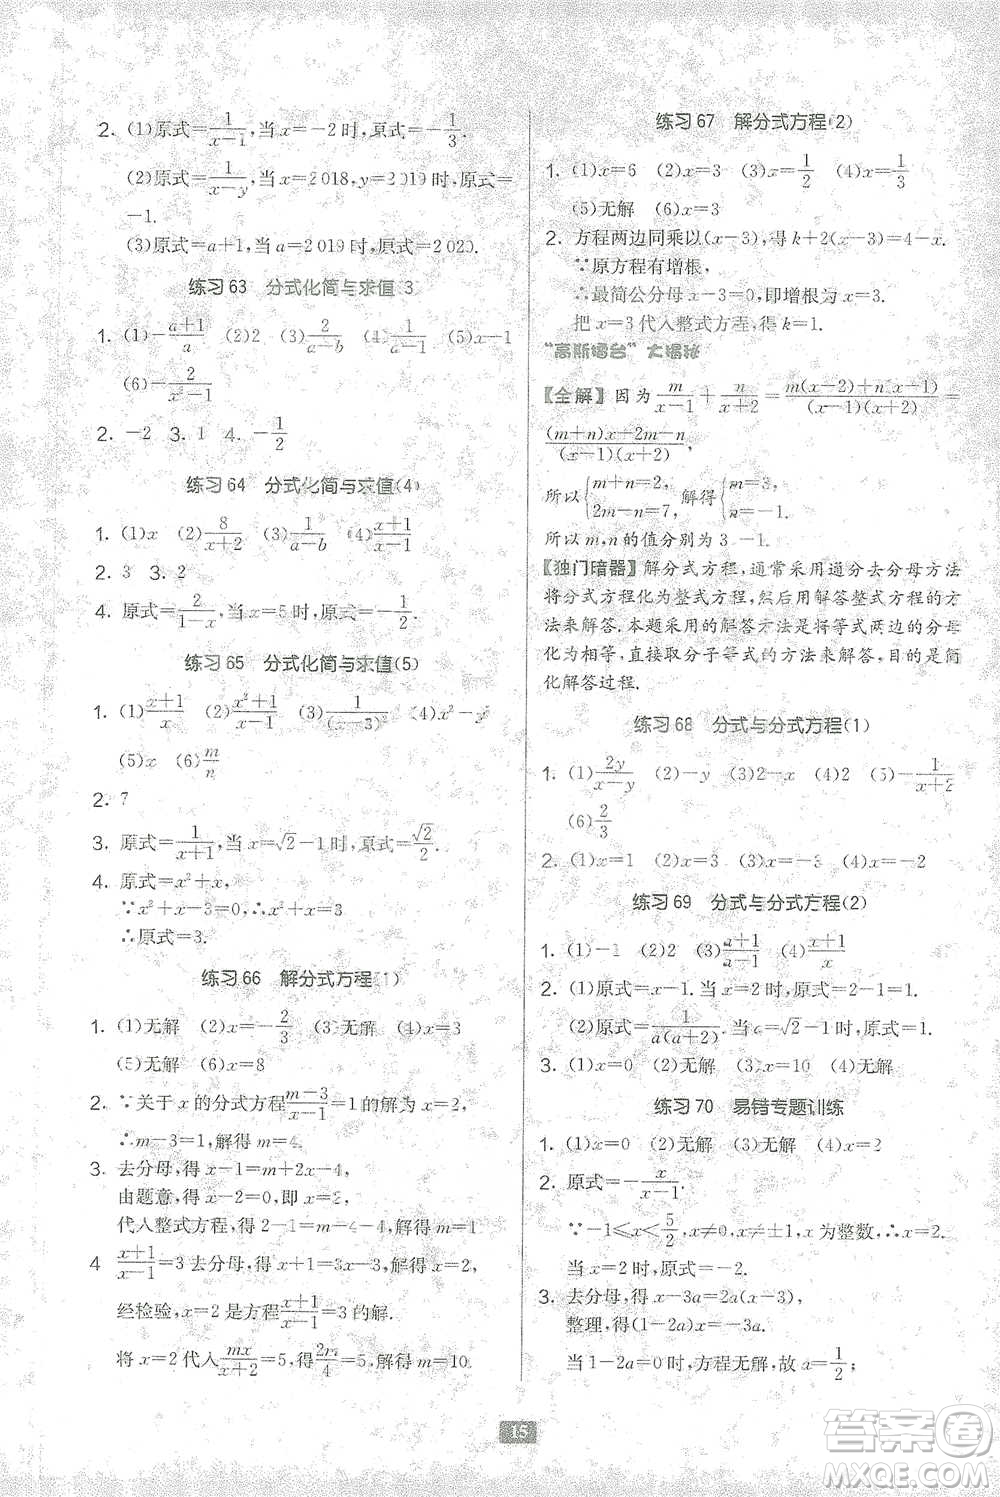 2. (1)原式=1/(x-1),当 x=-2 时,原式=-1/3.
(2)原式=1/(x-y),当 x=2 018,y=2 019 时,原式=
-1.
(3)原式=a+1,当 a=2 019 时,原式=2 020.
练习 63 分式化简与求值 3
1. (1)-(a+1)/a (2)2 (3)2/(a-b) (4)1/a (5)x-1
(6)-2/(x²-1)
2. -2 3. 1 4. -1/2
练习 64 分式化简与求值(4)
1. (1)x (2)8/(x+2) (3)1/(a-b) (4)(x+1)/(x-1)
2. 3 3. 2
4. 原式=2/(1-x),当 x=5 时,原式=-1/2.
练习 65 分式化简与求值(5)
1. (1)(x+1)/x (2)(x²+1)/(x-1) (3)1/(x-3)² (4)x²-x
(5)x (6)m/n
2. 7
3. 原式=1/(x+1),当 x=√2-1 时,原式=√2/2.
4. 原式=x²+x,
∵x²+x-3=0,∴x²+x=3
∴原式=3.
练习 66 解分式方程(1)
1. (1)无解 (2)x=-2/3 (3)无解 (4)x=3
(5)无解 (6)x=8
2. ∵关于 x 的分式方程(m-3)/(x-1)=1 的解为 x=2,
∴m-3=1,解得 m=4.
3. 去分母,得 x-1=m+2x-4,
由题意,得 x-2=0,即 x=2,
代入整式方程,得 2-1=m+4-4,解得 m=1.
4 (x+1)/(x-1)=3 去分母,得 x+1=3x-3,解得 x=2,
经检验,x=2 是方程(x+1)/(x-1)=3 的解.
将 x=2 代入mx/(x+2)=5,得2m/4=5,解得 m=10.
练习 67 解分式方程(2)
1. (1)x=6 (2)x=3 (3)x=1/2 (4)x=1/3
(5)无解 (6)x=3
2. 方程两边同乘以(x-3),得 k+2(x-3)=4-x.
∵原方程有增根,
∴最简公分母 x-3=0,即增根为 x=3.
把 x=3 代入整式方程,得 k=1.
“高斯擂台”大揭秘
【全解】因为 m/(x-1)+n/(x+2)=(m(x+2)+n(x-1))/((x-1)(x+2))=
((m+n)x+2m-n)/((x-1)(x+2)),
所以{m+n=2, 2m-n=7, 解得{m=3, n=-1.
所以 m,n 的值分别为 3,-1.
【独门暗器】解分式方程,通常采用通分去分母方法
将分式方程化为整式方程,然后用解答整式方程的方
法来解答.本题采用的解答方法是将等式两边的分母
化为相等,直接取分子等式的方法来解答,目的是简
化解答过程.
练习 68 分式与分式方程(1)
1. (1)2y/(x-y) (2)-y (3)-2x (4)2 (5)-1/(x+2)
(6)2/3
2. (1)x=1 (2)x=2 (3)x=-3 (4)x=-2
练习 69 分式与分式方程(2)
1. (1)-1 (2)2 (3)(a+1)/(a-1) (4)(x+1)/x
2. (1)原式=x-1. 当 x=2 时,原式=2-1=1.
(2)原式=1/(a(a+2)). 当 a=√2-1 时,原式=1.
3. (1)x=0 (2)无解 (3)x=10 (4)无解
练习 70 易错专题训练
1. (1)x=0 (2)无解 (3)无解 (4)x=2
2. 原式=-x/(x-1).
∵-1≤x<5/2,x≠0,x≠±1,x 为整数,∴x=2.
当 x=2 时,原式=-2.
3. 去分母,得 x-3a=2a(x-3),
整理,得(1-2a)x=-3a.
当 1-2a=0 时,方程无解,故 a=1/2;
15
答案卷
MXQE.COM